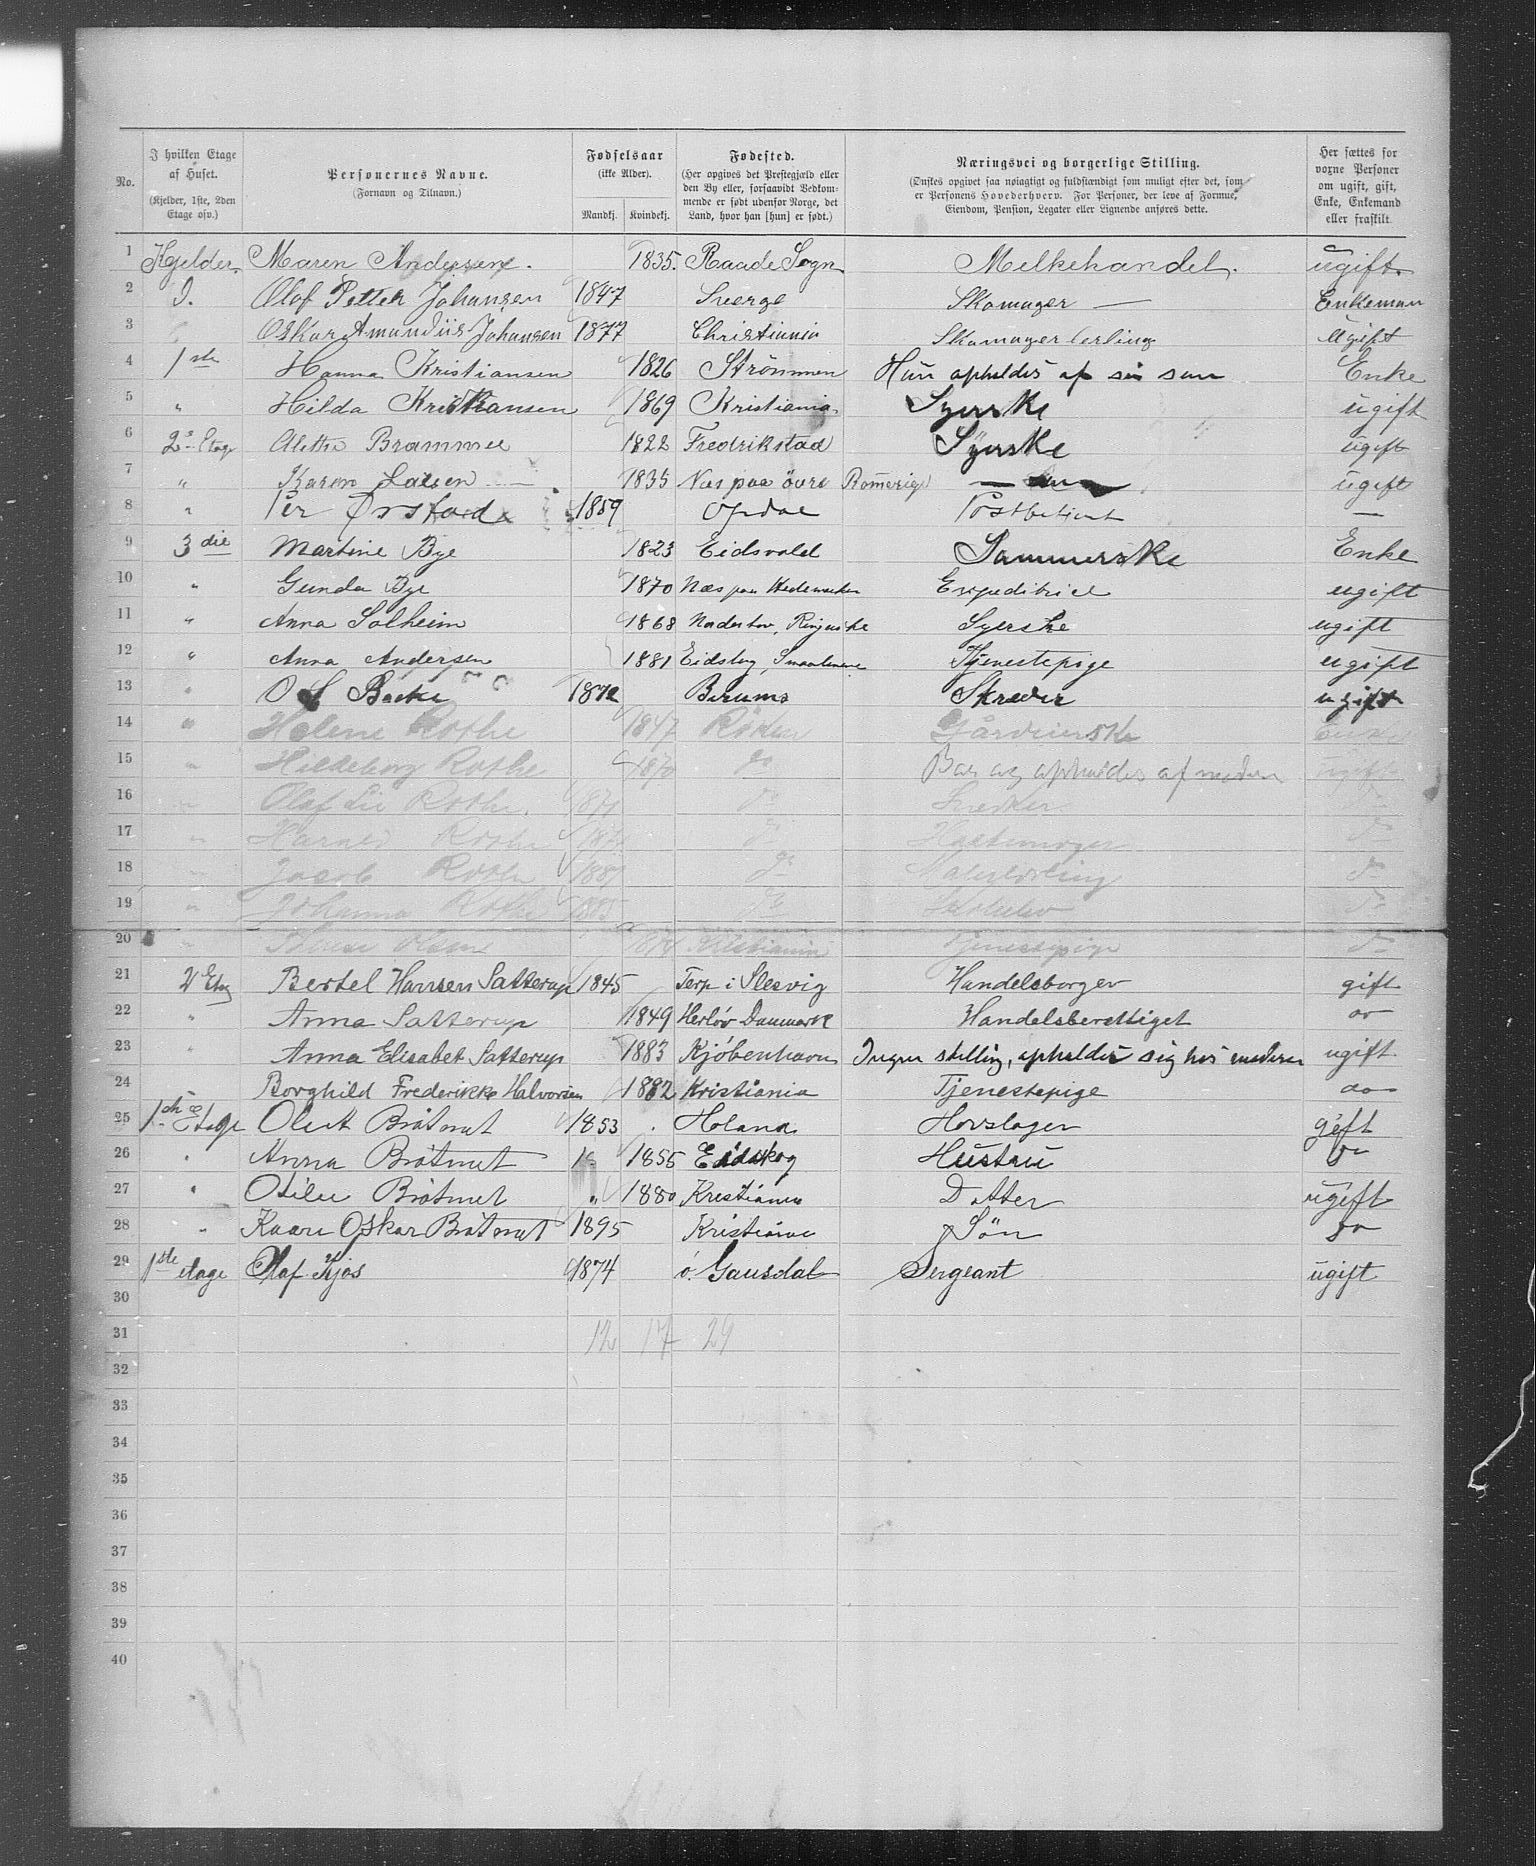 No. | I hvilken Etage af Huset. (Kjelder, 1ste, 2den Etage osv.) | Personernes Navne. (Fornavn og Tilnavn.) | Fødselsaar (ikke Alder). Mandkj. Kvindekj. | Fødested. (Her opgives det Prestegjæld eller den By eller, forsaavidt Vedkommende er født udenfor Norge, det Land, hvor han [hun] er født.) | Næringsvei og borgerlige Stilling. (Ønskes opgivet saa nøiagtigt og fuldstændigt som muligt efter det, som er Personens Hovederhverv. For Personer, der leve af Formue, Eiendom, Pension, Legater eller Lignende anføres dette. | Her sættes for voxne Personer om ugift, gift, Enke, Enkemand eller fraskilt.
1 Kjelder. Maren Andersen. 1835. Raade Sogn Melkehandel. ugift.
2 Olof Petter Johansen 1847 Sverge Skomager — Enkeman
3 Oskar Amundiis Johansen 1877 Christiania Skomager lerling ugift
4 1ste Hanna Kristiansen 1826 Strömmen Hun opholdes af sin søn Enke
5 " Hilda Kristiansen 1869 Kristiania Syerske ugift
6 2 Etage 1822 Fredrikstad Syerske ugift
7 " Karen 1835 Nes paa övre Romerige ugift
8 " Per Ørstad 1859 Opdal Postbetient —
9 3die Martine Bye 1823 Eidsvold Sømmerske Enke
10 " Gunda Bye 1870 Næs paa Hedemarken Expeditrice ugift
11 " Anna Solheim 1868 Syerske ugift
12 " Anna Andersen 1881 Tjenestepige ugift
13 " O Bakke 1872 Berums Skreder ugift
14 " Helene Rothe 1847 Röken Enke
15 " Hildeborg Rothe 1870 do opholdes af moderen ugift
16 " Olaf Rothe. do do
17 " Harald Rothe do do
18 " Jacob Rothe do Malerlerling do
19 " Johanna Rothe 1885 do do
20 " Olsen Kristiania Tjenestepige do
21 2 Etg Bertel Hansen Satterup 1845 Terp i Slesvig Handelsborger gift
22 " Anna Satterup 1849 Herlöv Danmark Handelsberettiget do
23 " Anna Elisabet Satterup 1883 Kjøbenhavn Ingen stilling, opholder sig hos moderen ugift
24 Borghild Frederikke Halvorsen 1882 Kristiania Tjenestepige do
25 1ste Etage Bråtnet 1853 Høland Hovslager gift
26 " Anna Bråtnet 1855 Eidskog Hustru do
27 " Bråtnet " 1880 Kristiania Datter ugift
28 " Kaare Oskar Bråtnet 1895 Kristiania Sön do
29 1ste etage Olaf Kjos 1874 ö. Gausdal Sergeant ugift
30
31 12 17 29
32
33
34
35
36
37
38
39
40